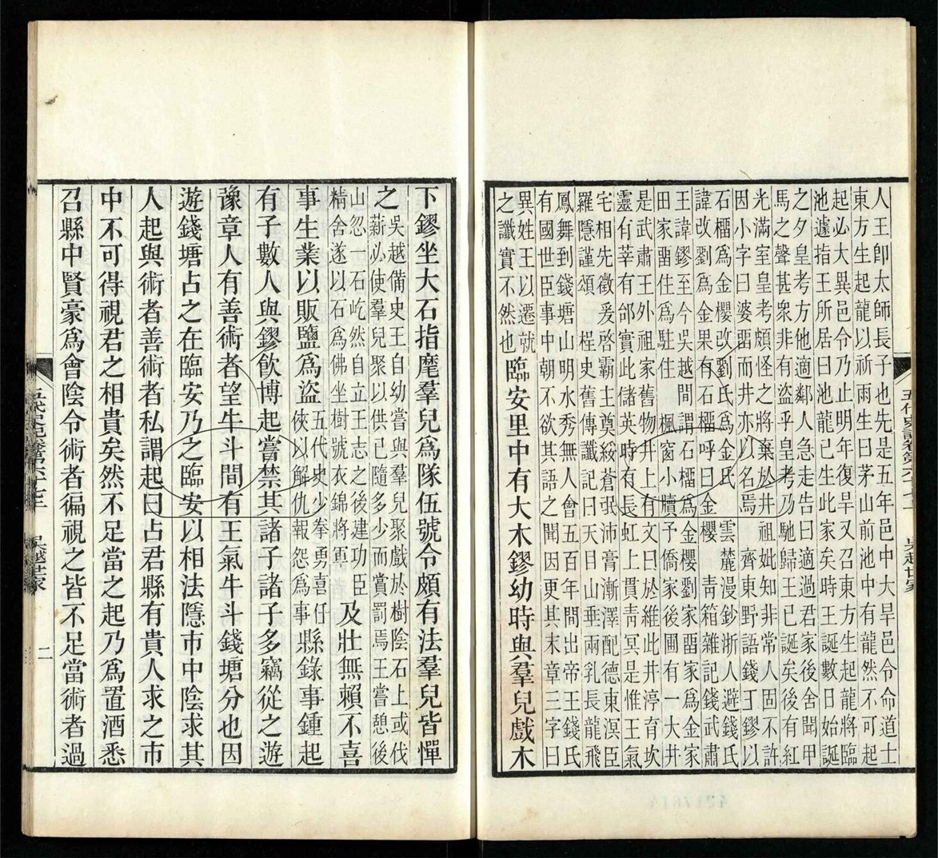 人王卽太師長子也先是五年邑中大旱邑令命道士
東方生起龍以祈雨生曰茅山前池中有龍然不可起
起必大異邑令乃止明年復旱又召東方生起龍將臨
池遽指王所居曰池龍已生此家矣時王誕數日始誕
之夕皇考方他適鄰人急走告曰適過君家後舍聞甲
馬之聲甚衆非有盜乎皇考乃馳歸王已誕矣後有紅
光滿室皇考頗怪之將棄於井祖妣知非常人固不許
因小字曰婆畱而井亦以名焉 齊東野語錢王鏐以
石橊爲金櫻改劉氏爲金氏 雲麓漫鈔浙人避錢氏
諱改劉爲金果有石橊呼曰金櫻 靑箱雜記錢武肅
王諱鏐至今吳越間謂石橊爲金櫻劉家畱家爲金家
田家畱住爲駐住 楓窗小牘予外家後圃有一大井
是武肅王外祖家舊物井上有文曰於維此井渟育坎
靈有莘有邰實此儲英時有長虹上貫靑冥是惟王氣
宅相先徵爰啓霸主奠綏蒼張沛膏漸澤配德東溟臣
羅隱謹頌 桯史舊傳讖記曰天目山垂兩乳長龍飛
鳳舞到錢塘山明水秀無人會五百年間出帝王錢氏
有國世臣事中朝不欲其語之聞因更其末章三字曰
異姓王以遷就
之讖實不然也
臨安里中有大木鏐幼時與羣兒戲木
下鏐坐大石指麾羣兒爲隊伍號令頗有法羣兒皆憚
之
吳越備史王自幼嘗與羣兒聚戲於樹陰石上或伐
薪必使羣兒聚以供已隨多少而賞罰焉王嘗憩後
山忽一石屹然自立王志之後建功臣
精舍遂以石爲佛坐樹號衣錦將軍
及壯無賴不喜
事生業以販鹽爲盜
五代史少拳勇喜任
俠以解仇報怨爲事
縣錄事鍾起
有子數人與鏐飲博起嘗禁其諸子諸子多竊從之遊
豫章人有善術者望牛斗間有王氣牛斗錢塘分也因
遊錢塘占之在臨安乃之臨安以相法隱市中陰求其
人起與術者善術者私謂起曰占君縣有貴人求之市
中不可得視君之相貴矣然不足當之起乃爲置酒悉
召縣中賢豪爲會陰令術者徧視之皆不足當術者過
吳越世家
二